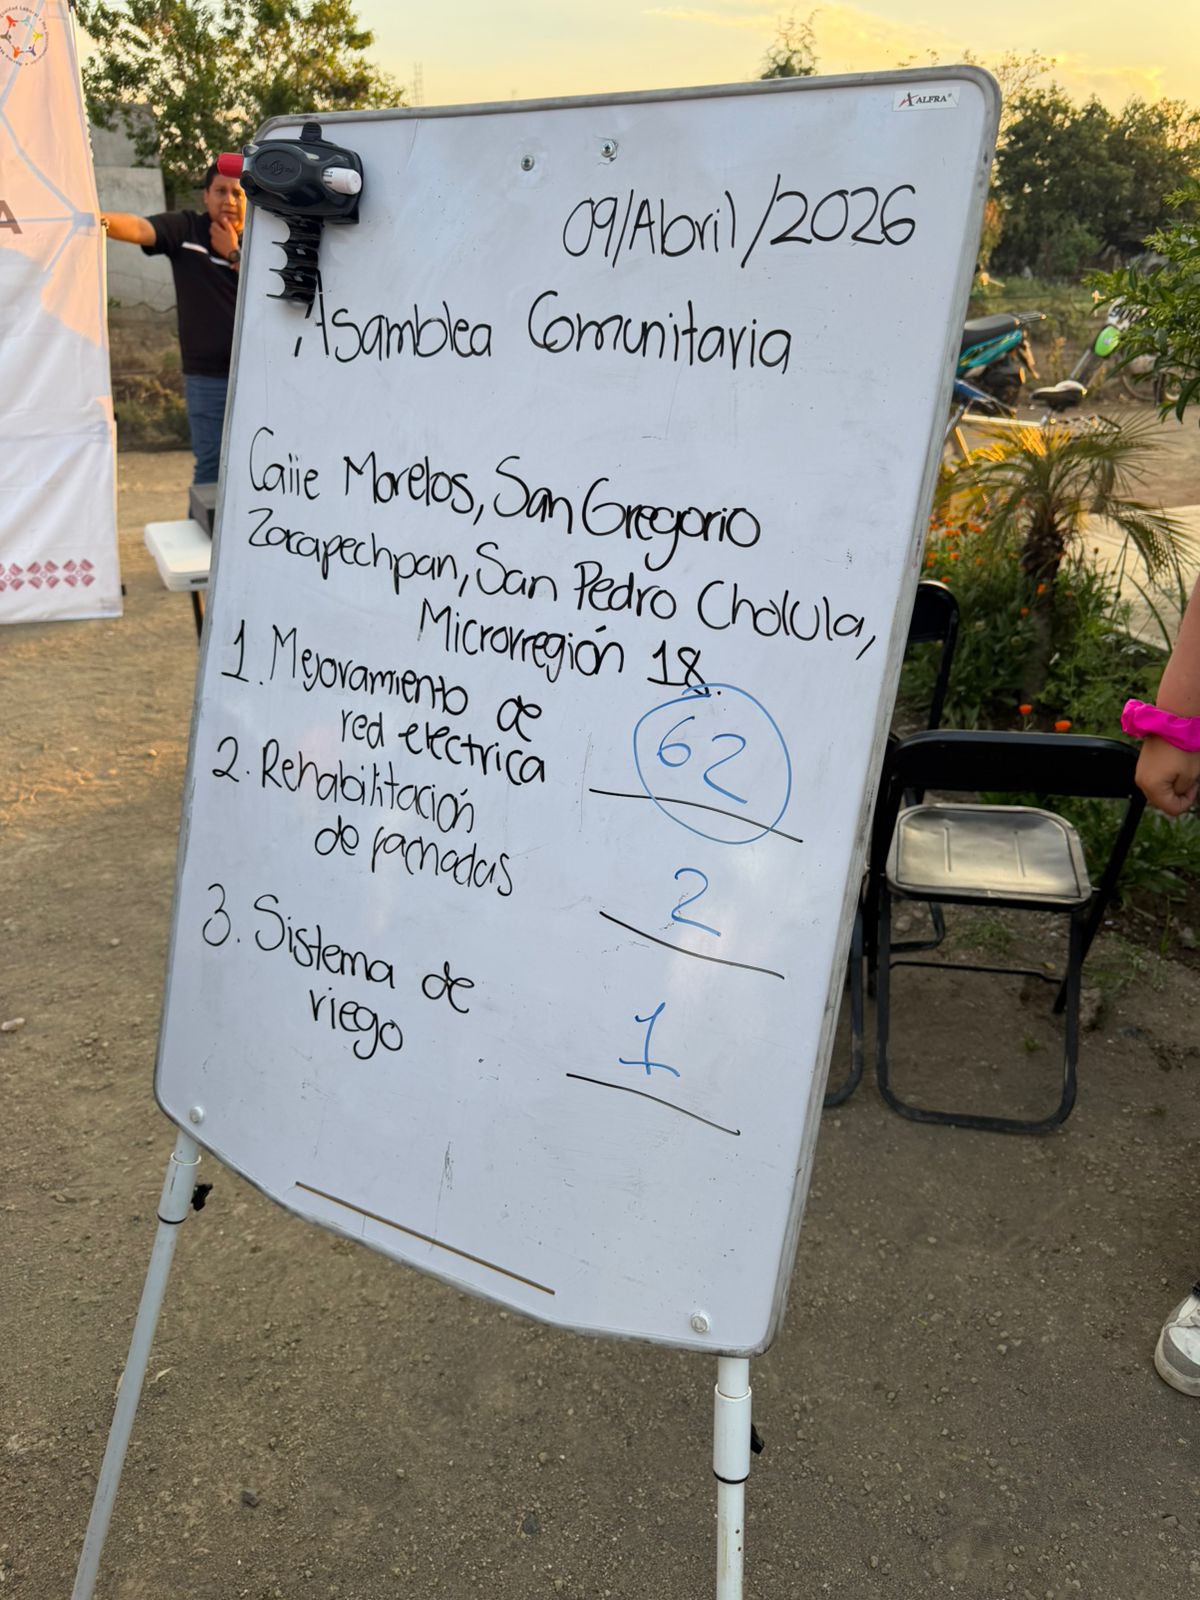 ALFRA
09/Abril/2026
Asamblea Comunitaria
Calle Morelos, San Gregorio
Zacapechpan, San Pedro Cholula,
Microrregión 18.
1. Mejoramiento de
red electrica
62
2. Rehabilitación
de fachadas
2
3. Sistema de
riego
1
A